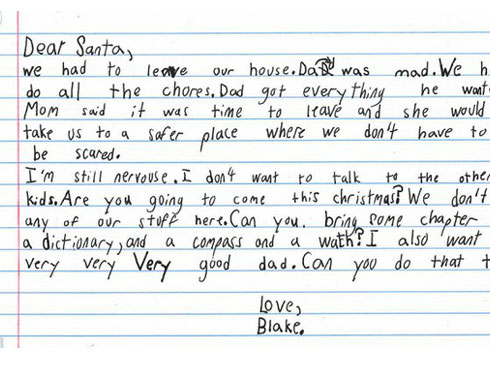 Dear Santa,
we had to leave our house. Dad was mad. We h
do all the chores. Dad got everything he want
Mom said it was time to leave and she would
take us to a safer place where we don't have to
be scared.
I'm still nervouse. I don't want to talk to the other
kids. Are you going to come this christmas? We don't
any of our stuff here. Can you. bring some chapter
a dictionary, and a compass and a wath? I also want
very very Very good dad. Can you do that t
Love,
Blake.